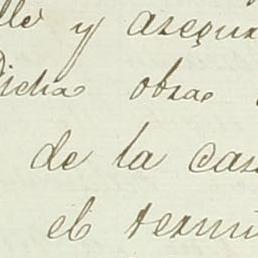 lle y asegur
Dicha obra
de la cas
el termi